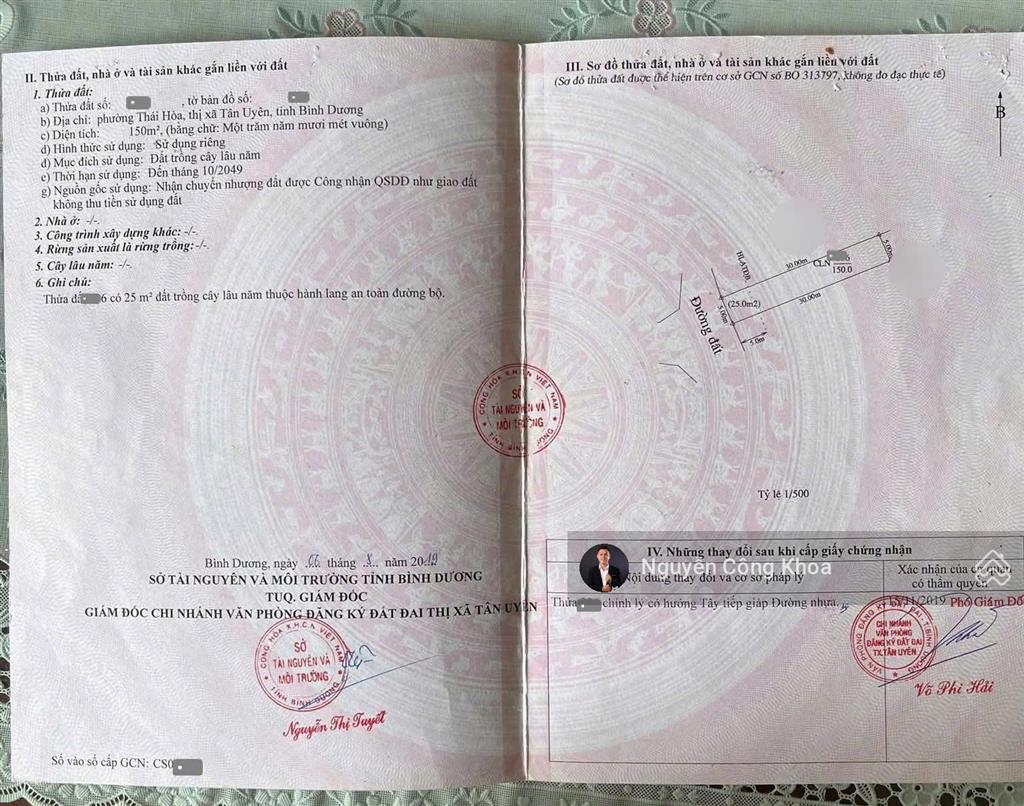 II. Thửa đất, nhà ở và tài sản khác gắn liền với đất
1. Thửa đất:
a) Thửa đất số: , tờ bản đồ số:
b) Địa chỉ: phường Thái Hòa, thị xã Tân Uyên, tỉnh Bình Dương
c) Diện tích: 150m², (bằng chữ: Một trăm năm mươi mét vuông)
d) Hình thức sử dụng: Sử dụng riêng
đ) Mục đích sử dụng: Đất trồng cây lâu năm
e) Thời hạn sử dụng: Đến tháng 10/2049
g) Nguồn gốc sử dụng: Nhận chuyển nhượng đất được Công nhận QSDĐ như giao đất
không thu tiền sử dụng đất
2. Nhà ở: -/-.
3. Công trình xây dựng khác: -/-.
4. Rừng sản xuất là rừng trồng: -/-.
5. Cây lâu năm: -/-.
6. Ghi chú:
Thửa đất 6 có 25 m² đất trồng cây lâu năm thuộc hành lang an toàn đường bộ.
Bình Dương, ngày 06 tháng 8 năm 2019
SỞ TÀI NGUYÊN VÀ MÔI TRƯỜNG TỈNH BÌNH DƯƠNG
TUQ. GIÁM ĐỐC
GIÁM ĐỐC CHI NHÁNH VĂN PHÒNG ĐĂNG KÝ ĐẤT ĐAI THỊ XÃ TÂN UYÊN
CỘNG HÒA X.H.C.N VIỆT NAM
SỞ
TÀI NGUYÊN VÀ
MÔI TRƯỜNG
TỈNH BÌNH DƯƠNG
Nguyễn Thị Tuyết
Số vào sổ cấp GCN: CS0
CỘNG HÒA X.H.C.N VIỆT NAM
SỞ
TÀI NGUYÊN VÀ
MÔI TRƯỜNG
TỈNH BÌNH DƯƠNG
III. Sơ đồ thửa đất, nhà ở và tài sản khác gắn liền với đất
(Sơ đồ thửa đất được thể hiện trên cơ sở GCN số BO 313797, không đo đạc thực tế)
B
HLATĐB
30.00m
CLN
150.0
5.00m
30.00m
(25.0m2)
5.00m
5.0m
Đường đất
Tỷ lệ 1/500
IV. Những thay đổi sau khi cấp giấy chứng nhận
Nguyễn Công Khoa
Nội dung thay đổi và cơ sở pháp lý
Xác nhận của cơ quan
có thẩm quyền
Thửa chỉnh lý có hướng Tây tiếp giáp Đường nhựa.
15/11/2019 Phó Giám Đố
VĂN PHÒNG ĐĂNG KÝ ĐẤT ĐAI - T.BÌNH DƯƠNG
CHI NHÁNH
VĂN PHÒNG
ĐĂNG KÝ ĐẤT ĐAI
TX.TÂN UYÊN
Võ Phi Hải